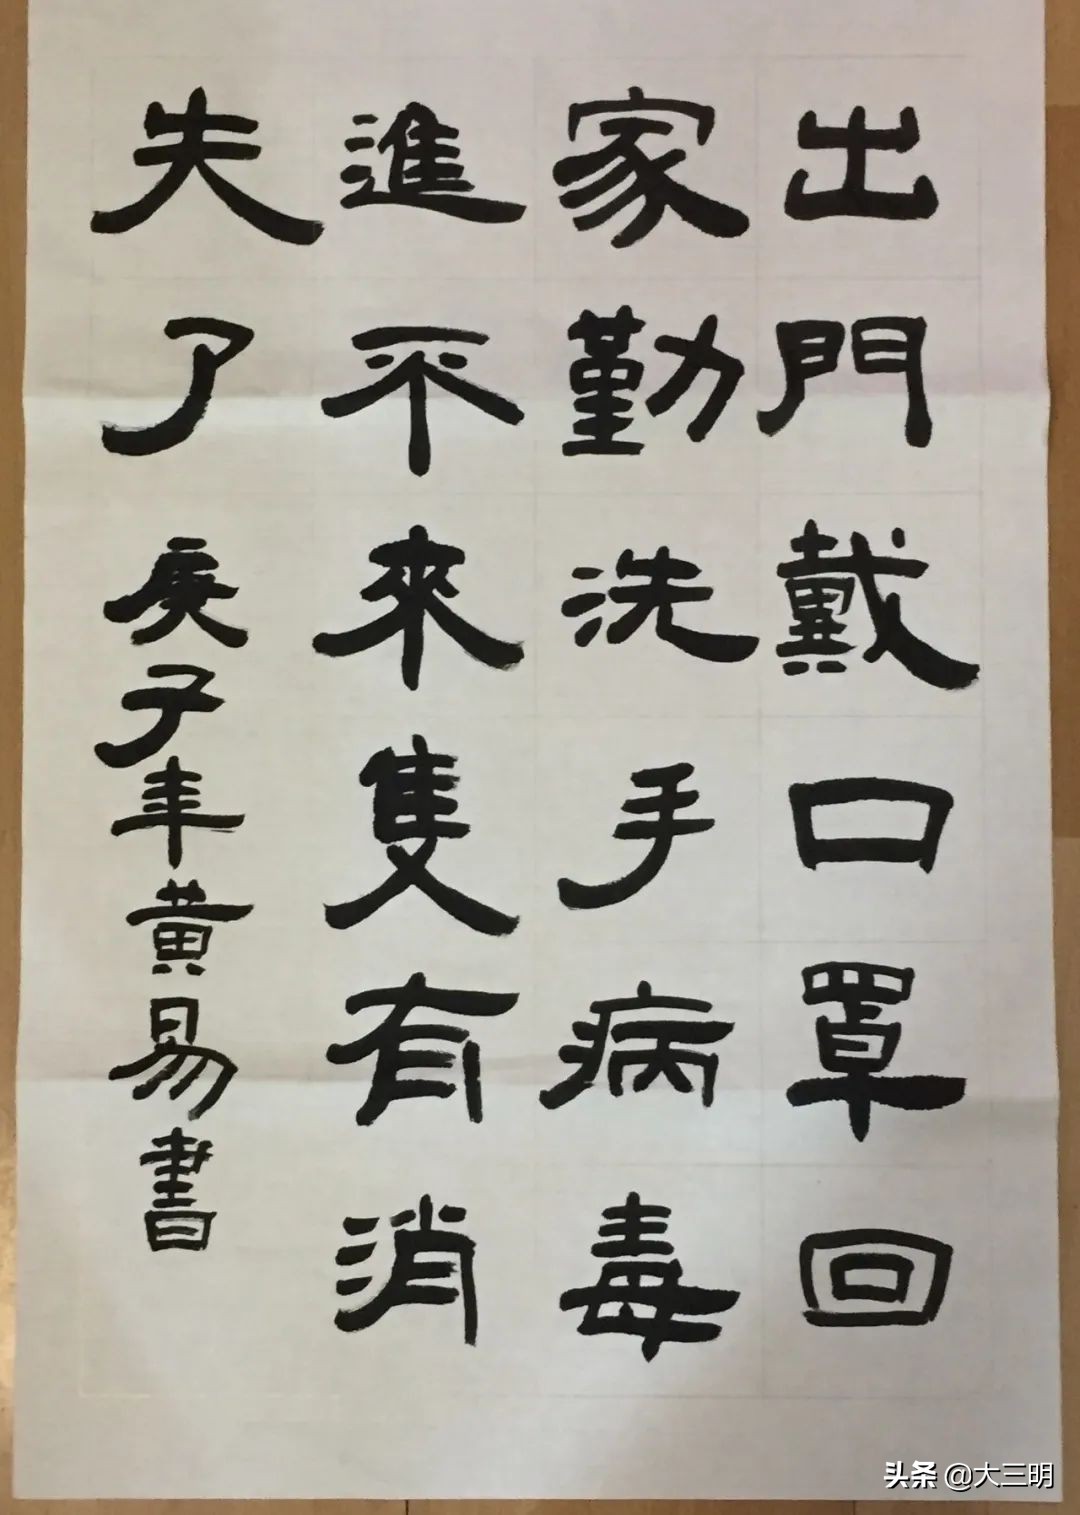 出門戴口罩回
家勤洗手病毒
進不來隻有消
失了庚子年黄易書
头条 @大三明